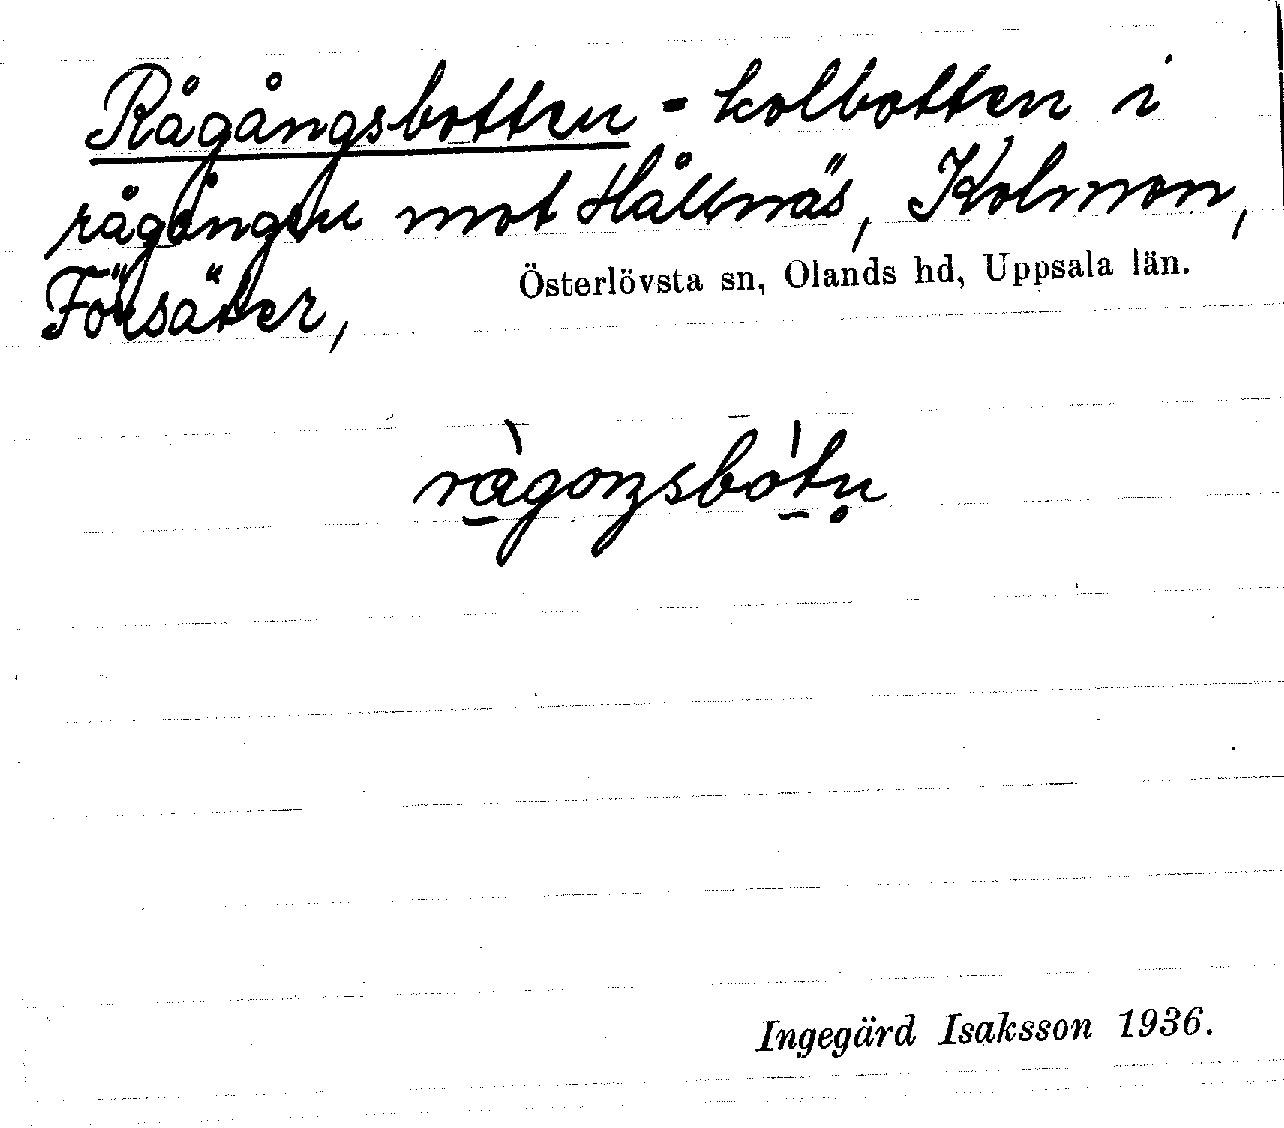 Rågångsbotten - kolbotten i
rågången mot Hållnäs, Kolmon,
Försäter, Österlövsta sn, Olands hd, Uppsala län.
Ingegärd Isaksson 1936.